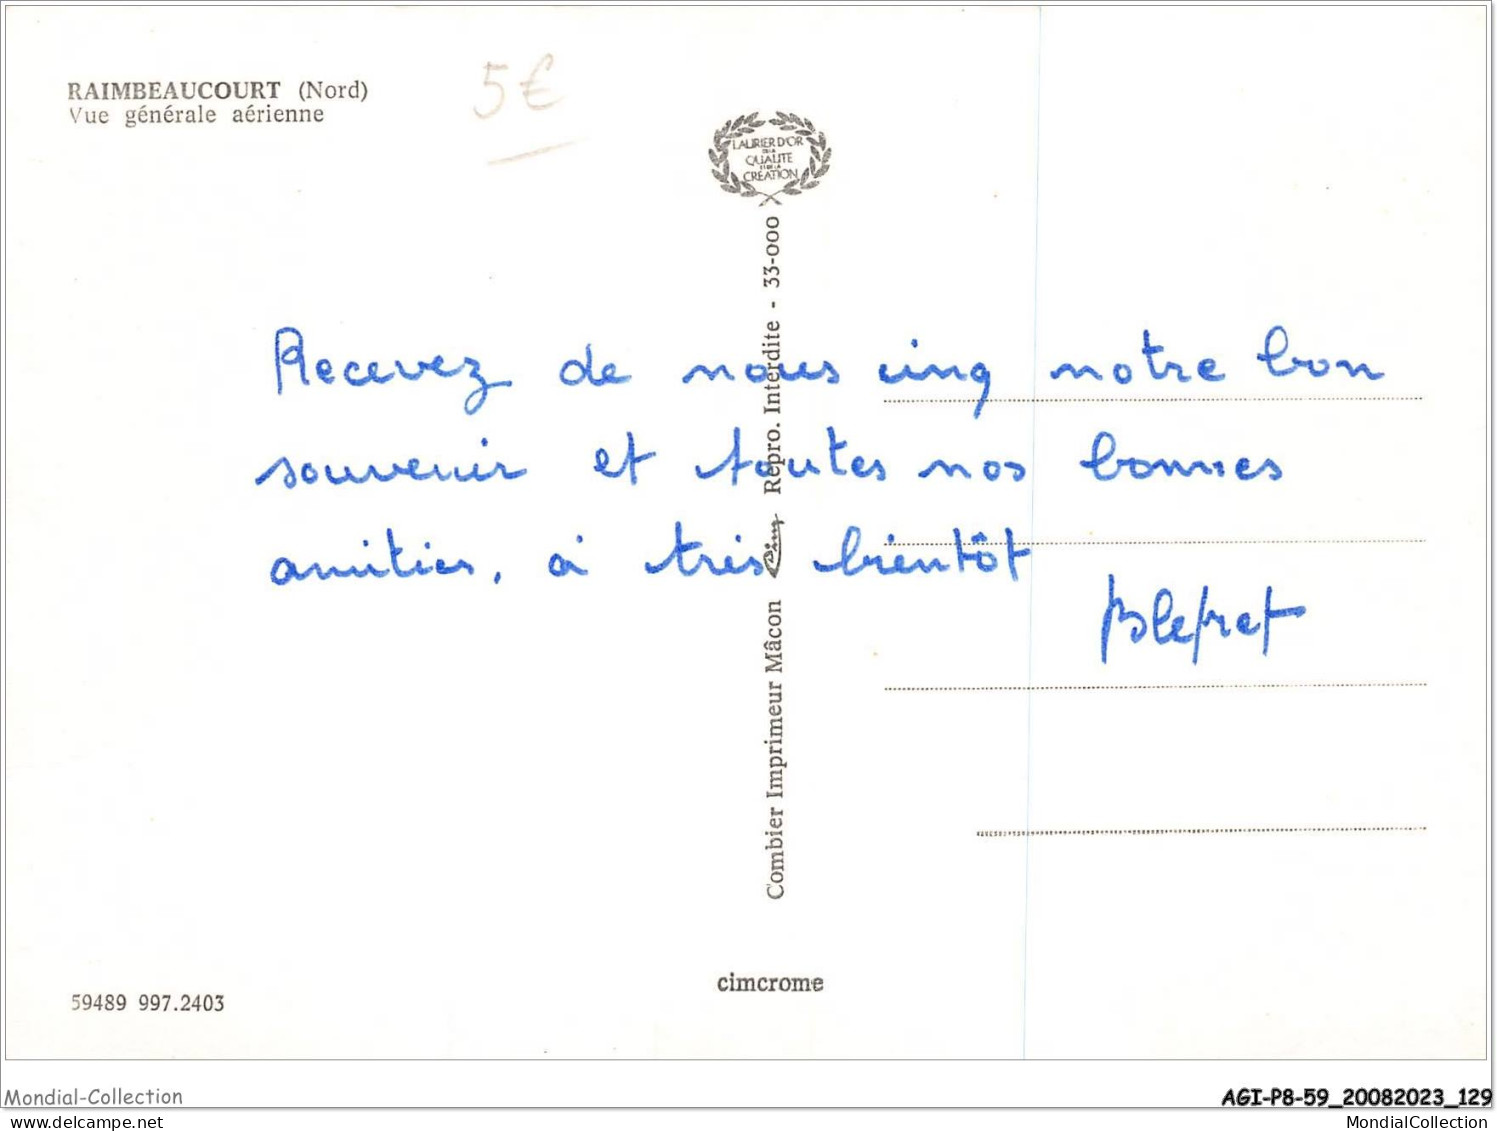 RAIMBEAUCOURT (Nord)
Vue générale aérienne
5€
LAURIER D'OR
DE LA
QUALITE
ET DE LA
CRÉATION
Recevez de nous cinq notre bon
souvenir et toutes nos bonnes
amitiés, à très bientôt
Combier Imprimeur Mâcon Cim Repro. Interdite - 33-000
cimcrome
59489 997.2403
Mondial-Collection
AGI-P8-59_20082023_129
MondialCollection